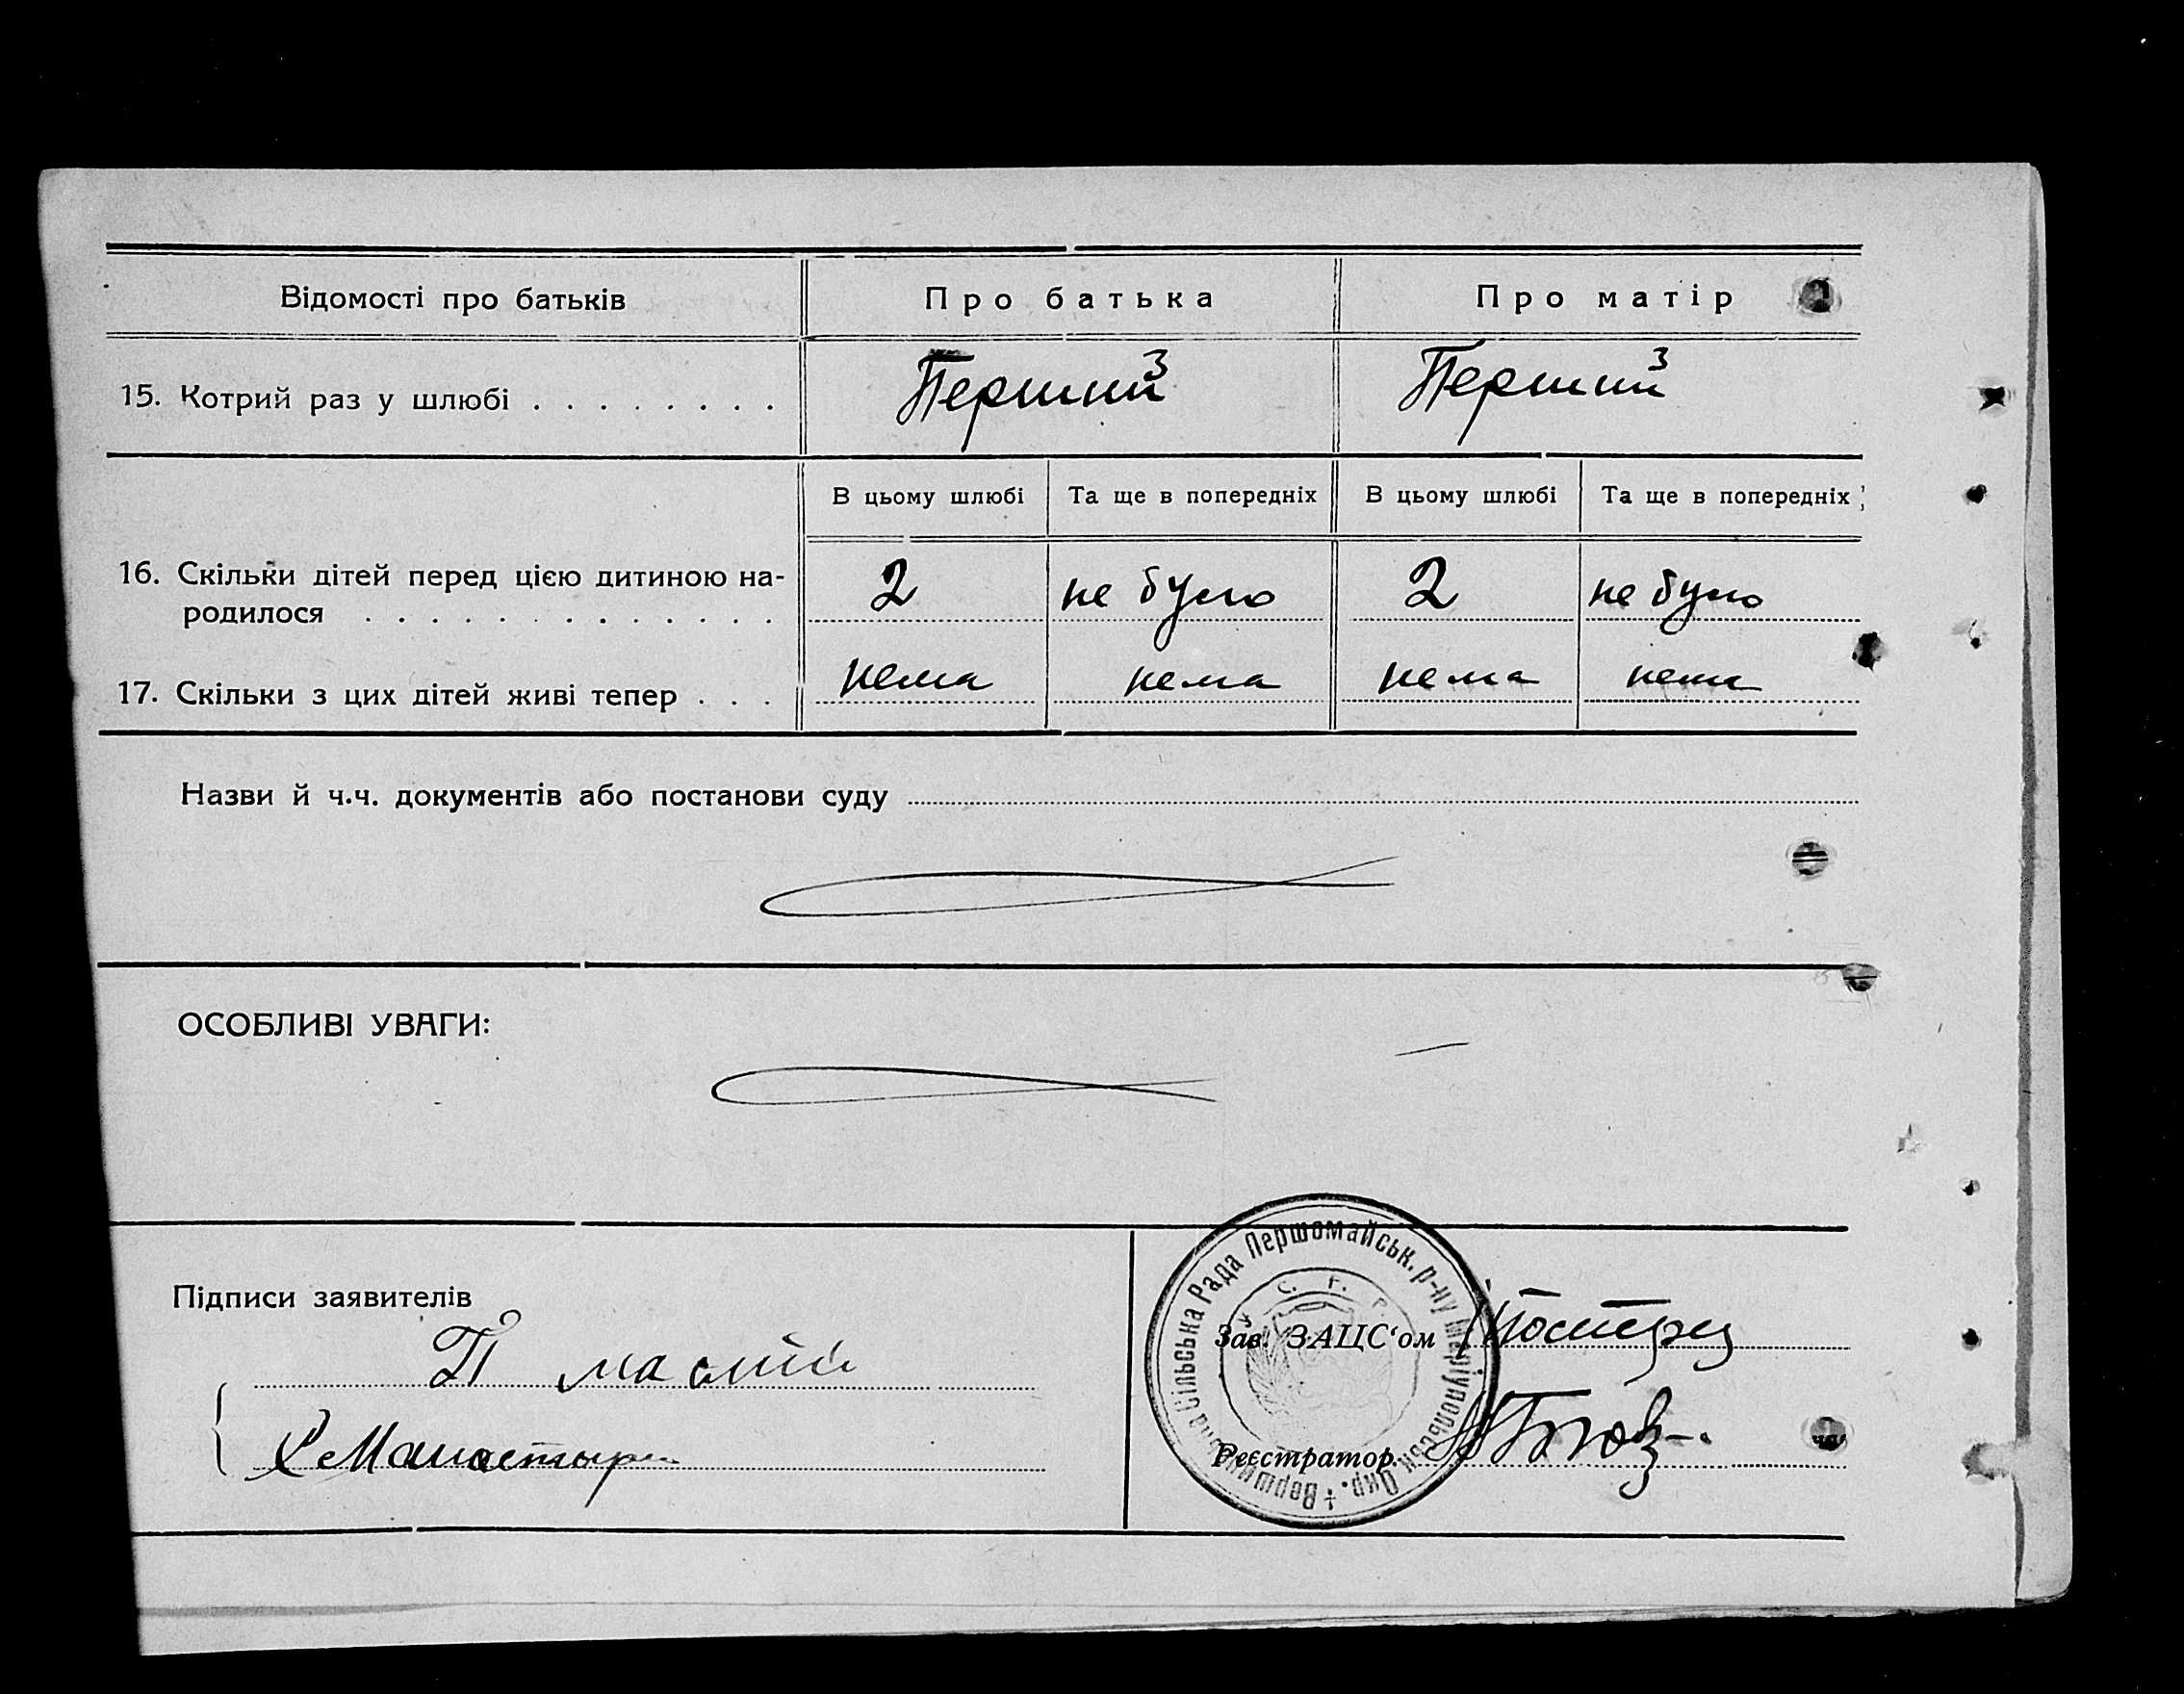 Відомості про батьків
Про батька
Про матір
15. Котрий раз у шлюбі . . . . . . . .
Перший 3
Перший 3
В цьому шлюбі
Та ще в попередніх
В цьому шлюбі
Та ще в попередніх
16. Скільки дітей перед цією дитиною на-
родилося . . . . . . . . . . . . .
2
не було
2
не було
17. Скільки з цих дітей живі тепер . . .
нема
нема
нема
нема
Назви й ч.ч. документів або постанови суду
ОСОБЛИВІ УВАГИ:
Підписи заявителів
Зав. ЗАЦС'ом
Реєстратор
Сільська Рада Першомайськ. р-ну Маріупольськ. Окр.
У. С. Р. Р.